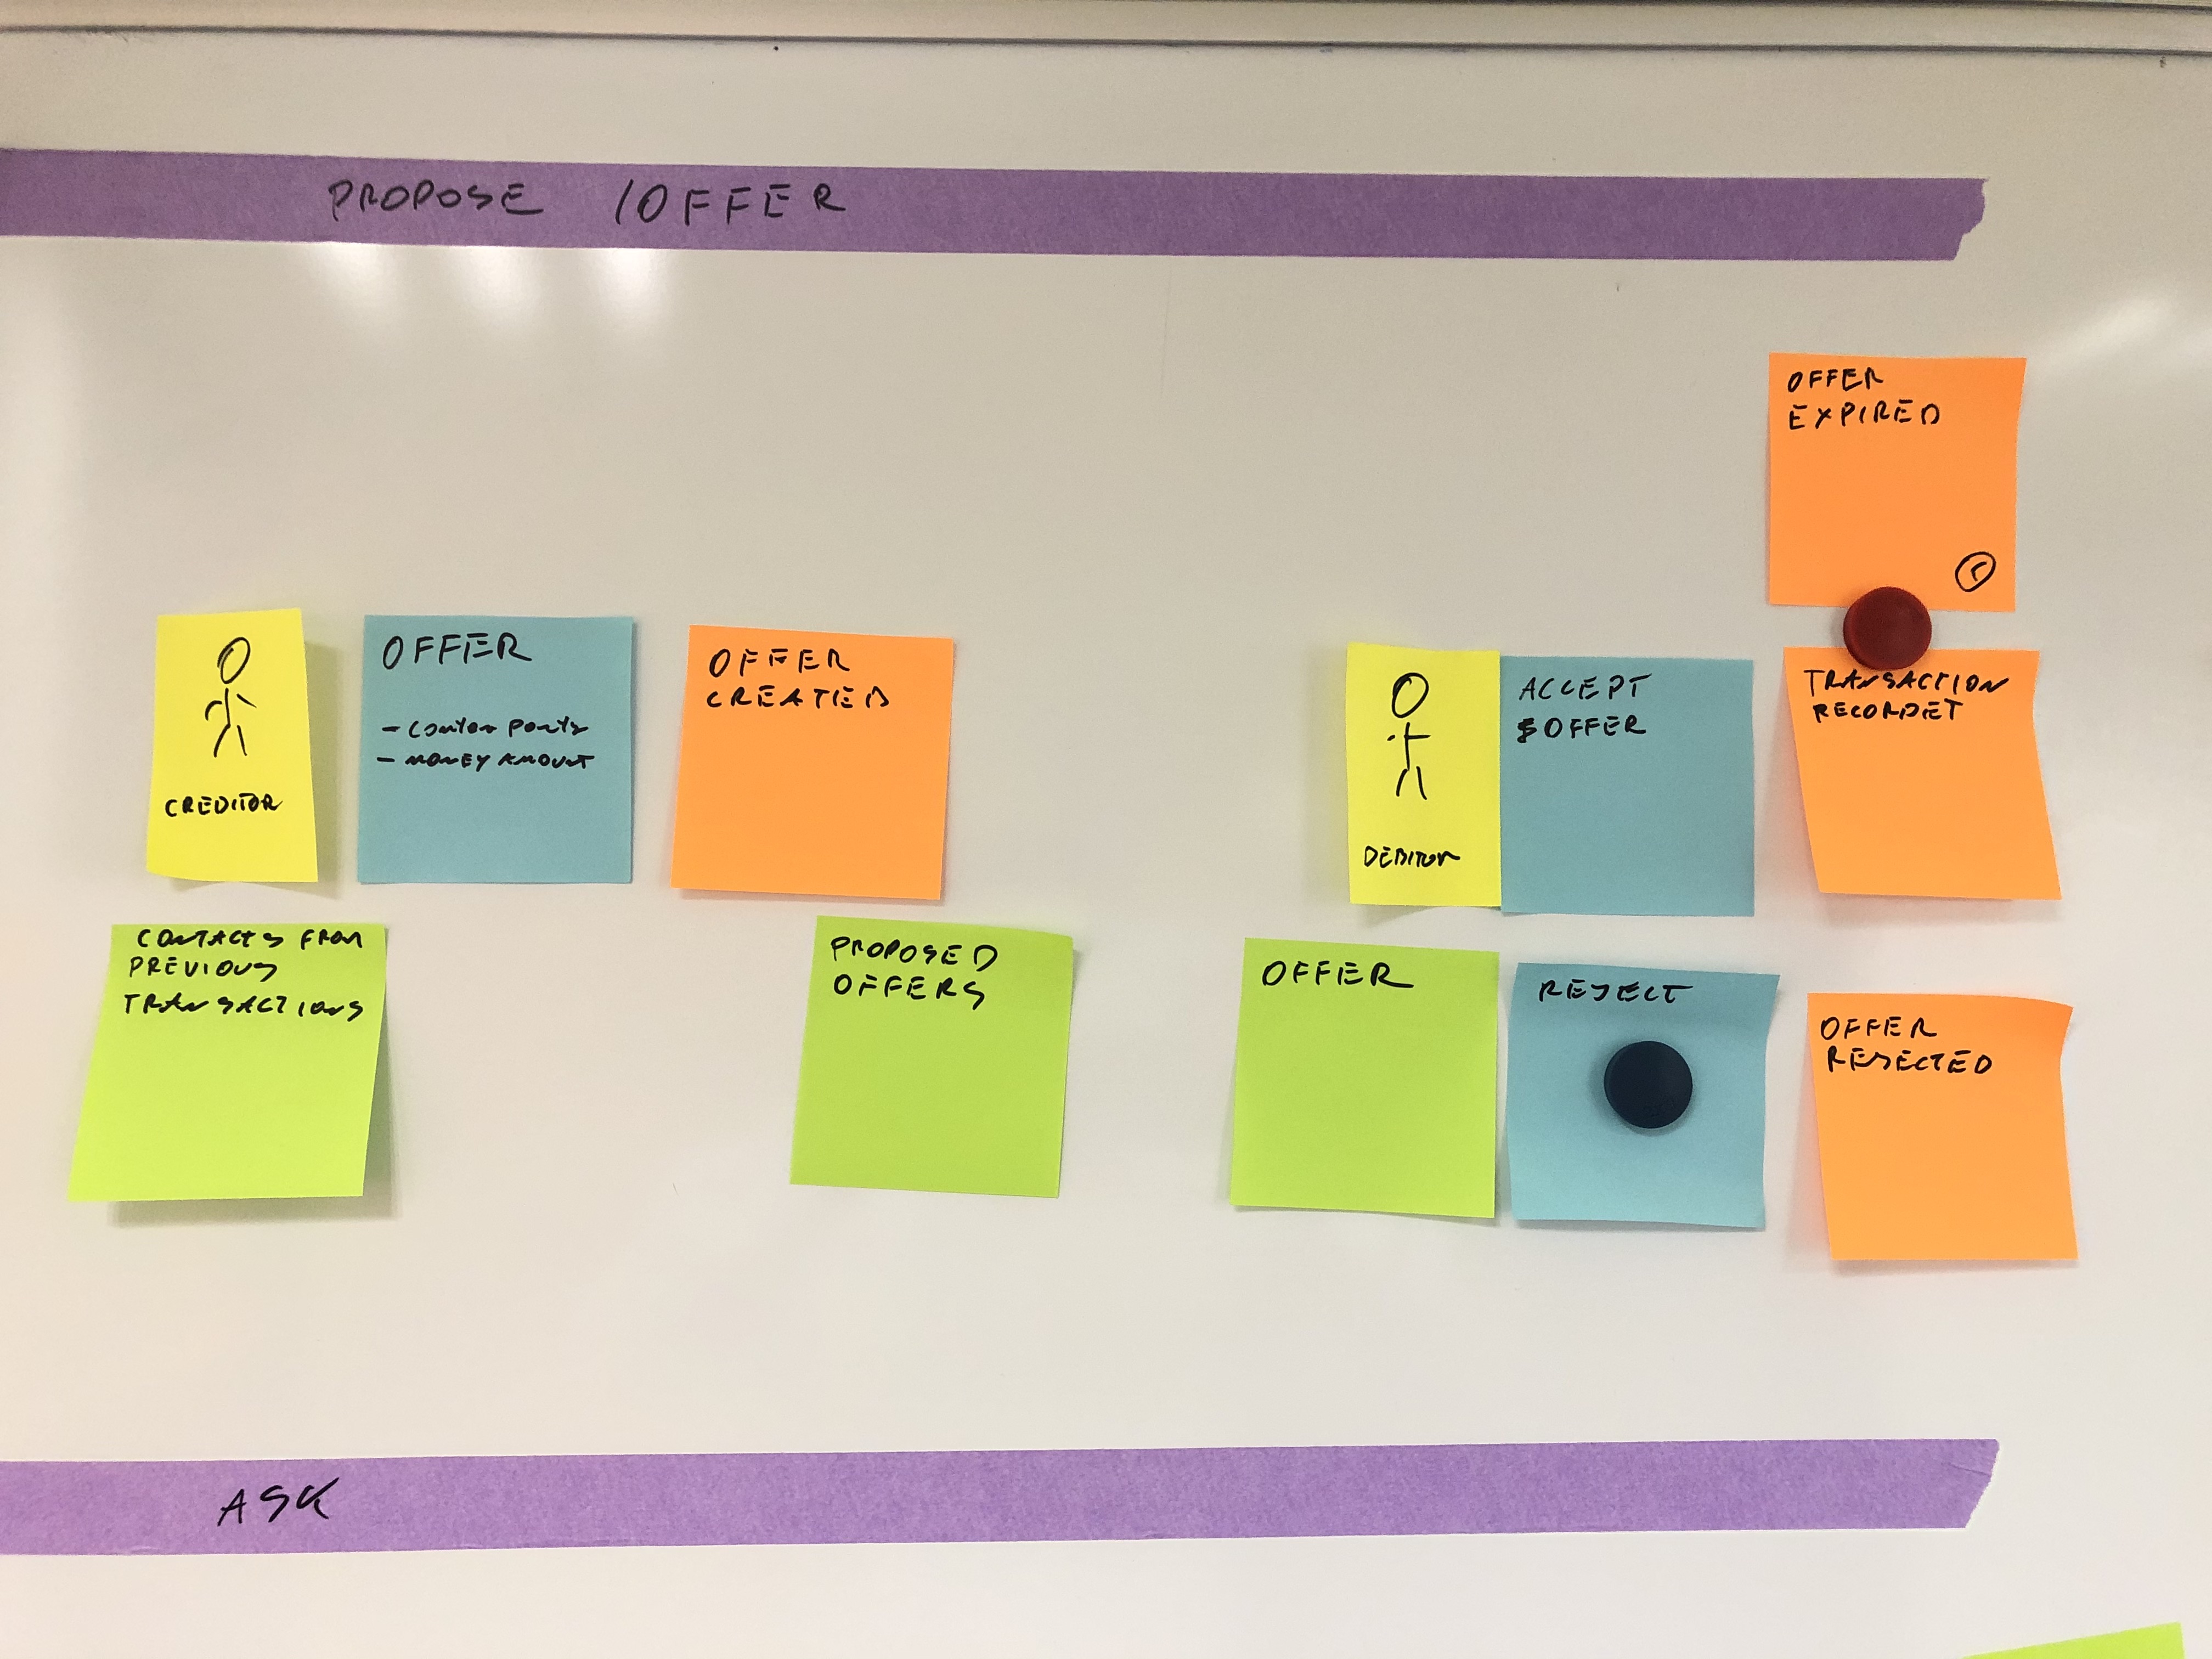 PROPOSE /OFFER
OFFER
EXPIRED
CREDITOR
OFFER
- MONEY AMOUNT
OFFER
CREATED
DEBITOR
ACCEPT
OFFER
TRANSACTION
RECORDET
CONTACTS FROM
PREVIOUS
TRANSACTIONS
PROPOSED
OFFERS
OFFER
REJECT
OFFER
REJECTED
ASK